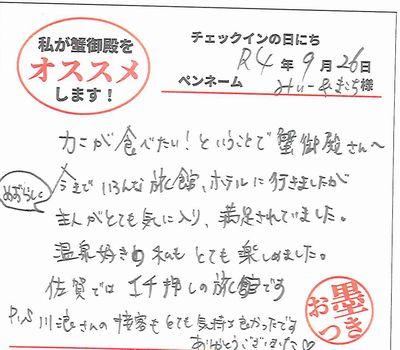 私が蟹御殿を
オススメ
します！
チェックインの日にち
R4年9月26日
ペンネーム
みぃーかまこち様
カニが食べたい！ということで蟹御殿さんへ
めずらしく
今までいろんな旅館、ホテルに行きましたが
主人がとても気に入り、満足されていました。
温泉好きの私もとても楽しめました。
佐賀ではイチ押しの旅館です
P.S 川浪さんの接客もとても気持ちよかったです
ありがとうございました♡
お墨つき